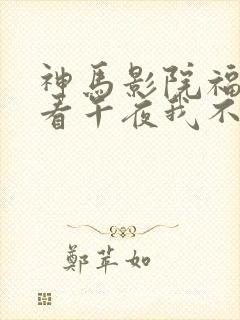 神馬影院福
看午夜我不
鄭苹如